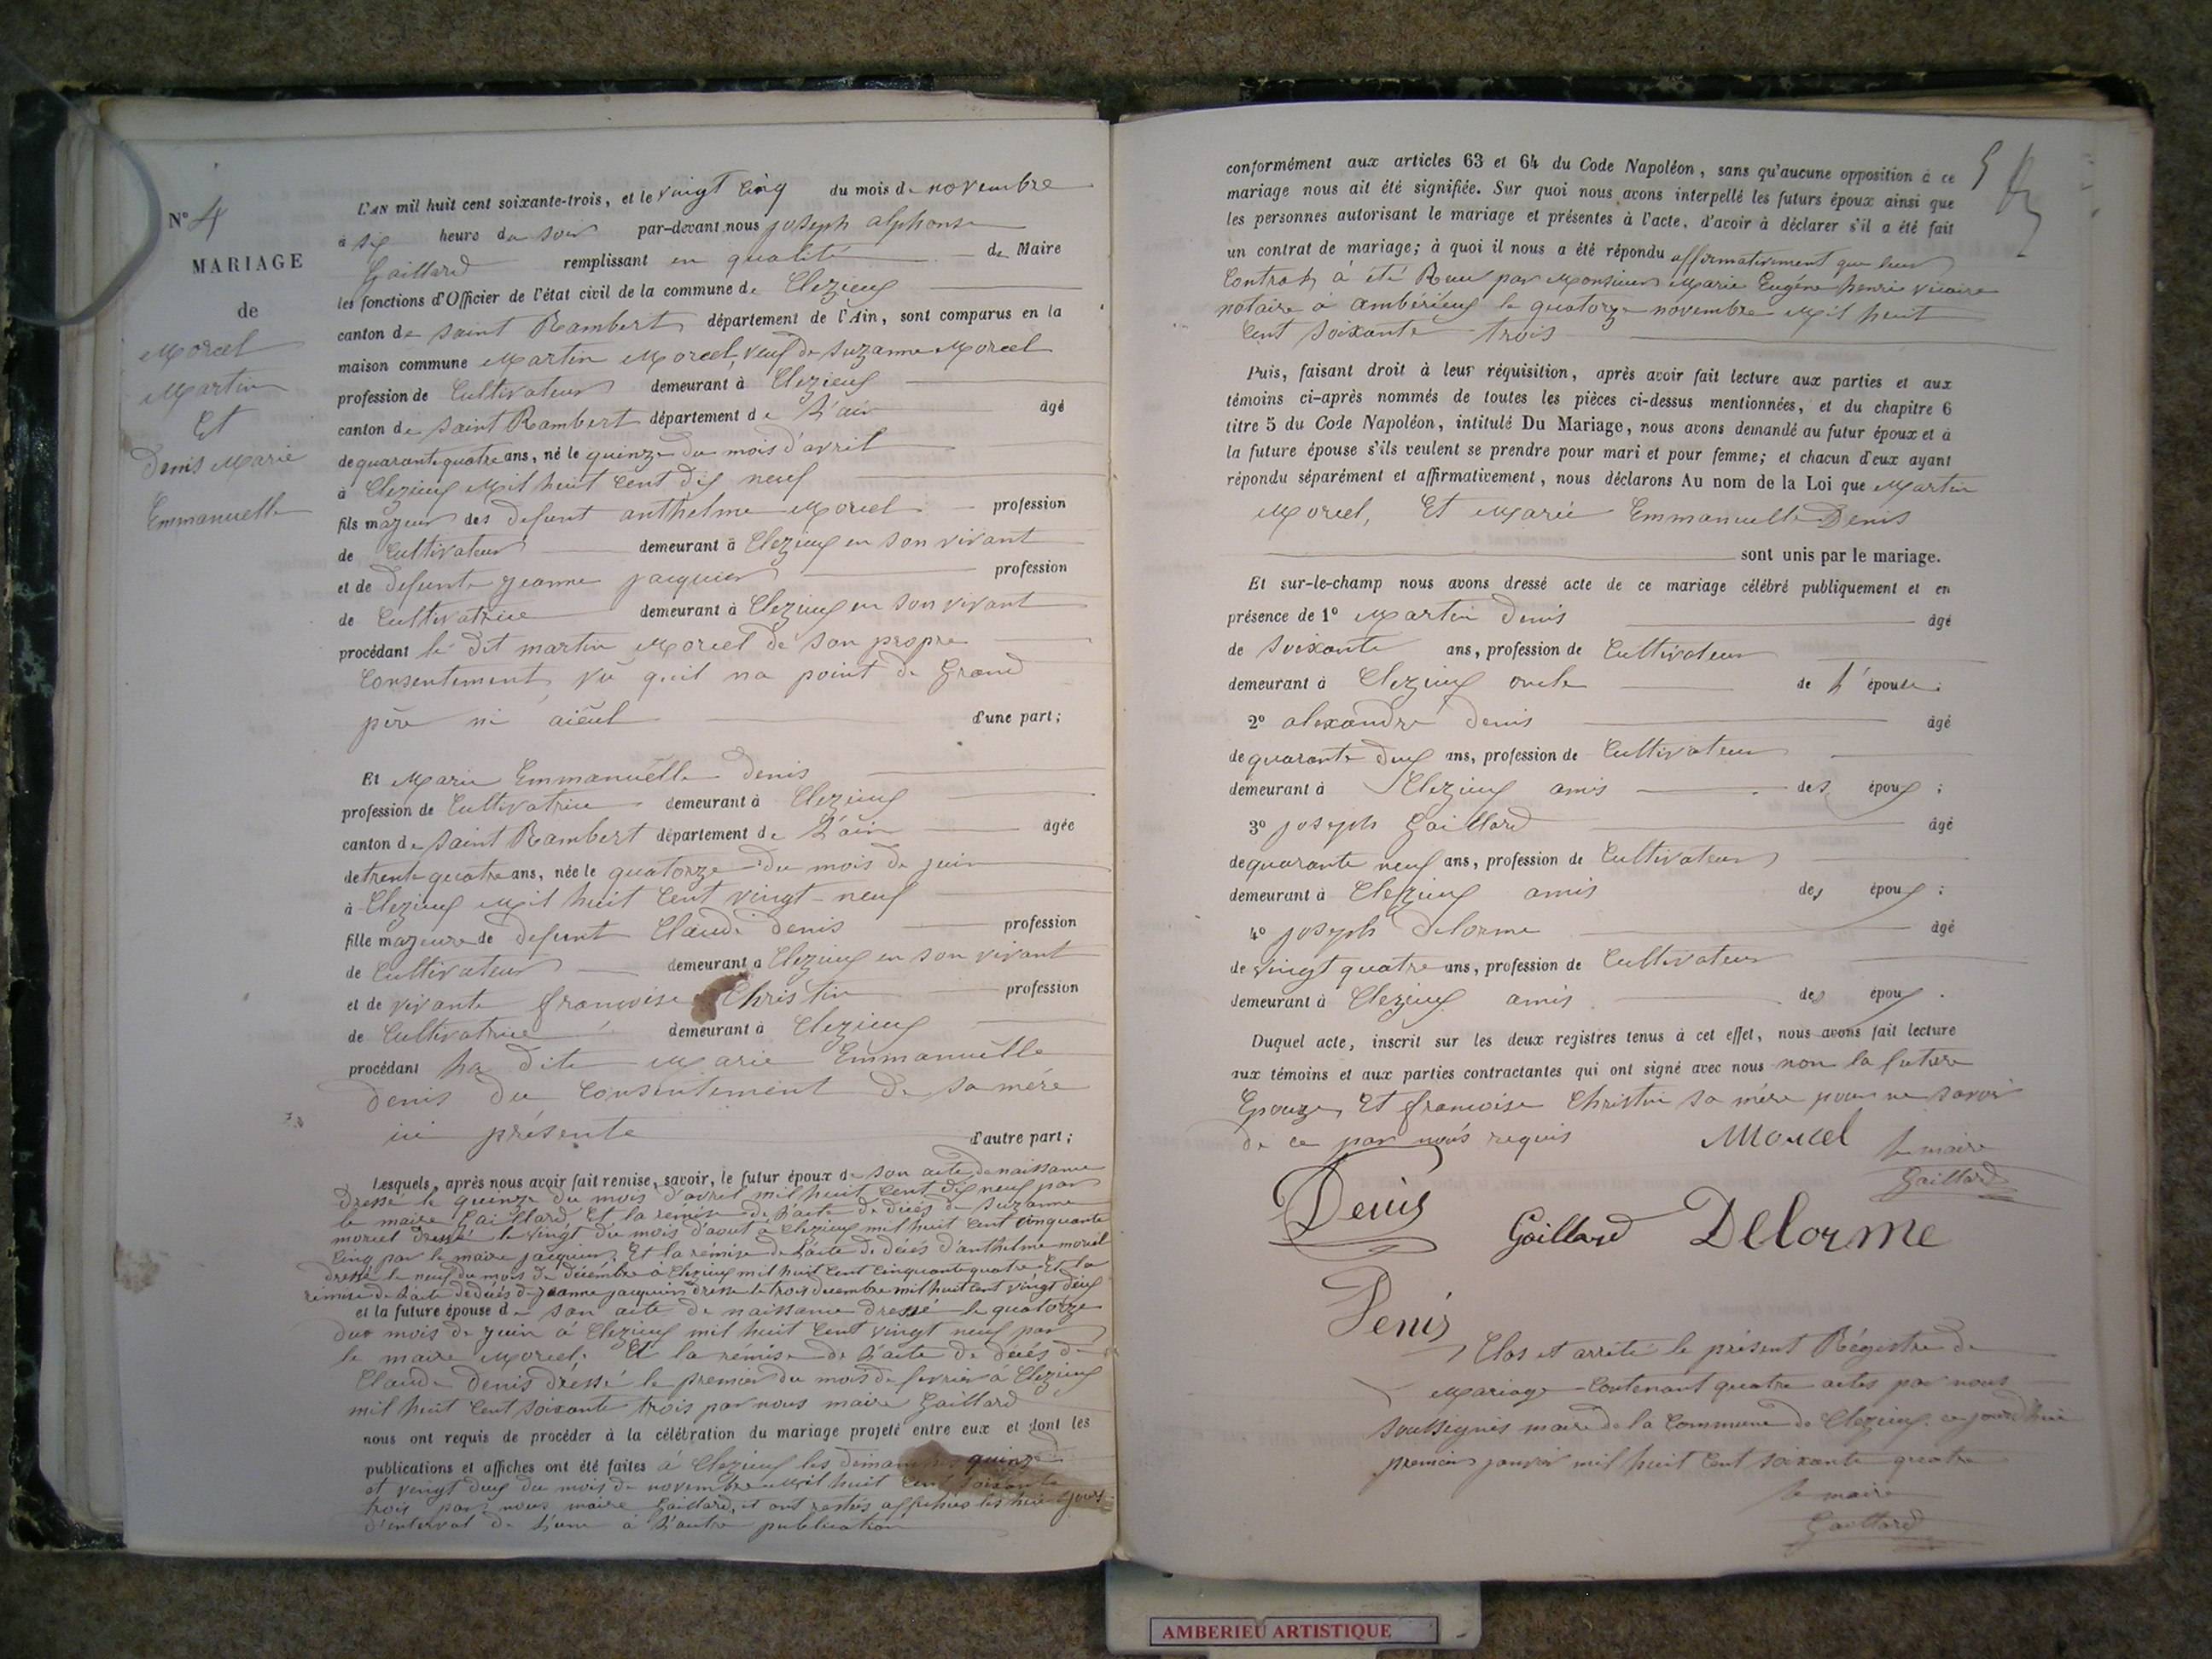 N° 4
MARIAGE
de
Morcel
Martin
Et
Denis Marie
Emmanuelle
L'AN mil huit cent soixante-trois, et le vingt Cinq du mois de novembre
à six heure du soir par-devant nous joseph alphonse
Gaillard remplissant en qualité de Maire
les fonctions d'Officier de l'état civil de la commune de Clezieux
canton de saint Rambert département de l'Ain, sont comparus en la
maison commune Martin Morcel, veuf de suzanne Morcel
profession de Cultivateur demeurant à Clezieux
canton de saint Rambert département de L'ain âgé
de quarante quatre ans, né le quinze du mois d'avril
à Clezieux Mil huit Cent dix neuf
fils majeur des defunt anthelme Morcel profession
de Cultivateur demeurant à Clezieux en son vivant
et de defunte jeanne jacquin profession
de Cultivatrice demeurant à Clezieux en son vivant
procédant le dit martin Morcel de son propre
Consentement vu quil na point de Grand
père ni aieul d'une part;
Et Marie Emmanuëlle Denis
profession de Cultivatrice demeurant à Clezieux
canton de saint Rambert département de L'ain âgée
de trente quatre ans, née le quatorze du mois de juin
à Clezieux Mil huit Cent vingt-neuf
fille majeure de defunt Claude Denis profession
de Cultivateur demeurant a Clezieux en son vivant
et de vivante francoise Christin profession
de Cultivatrice demeurant à Clezieux
procédant La dite Marie Emmanuëlle
Denis du Consentement de sa mére
ici présente d'autre part;
Lesquels, après nous avoir fait remise, savoir, le futur époux de son acte de naissance
Dressé le quinze du mois d'avril mil huit Cent dix neuf par
le maire Gaillard Et la remise de L'acte de décés de suzanne
morcel Dressé le vingt du mois d'aout à Clezieux mil huit Cent Cinquante
Cinq par le maire jacquin, Et la remise de L'acte de décés d'anthelme morcel
Dressé le neuf du mois de décembre à Clezieux mil huit Cent Cinquante quatre Et la
remise de L'acte de décés de jeanne jacquin dressé le trois decembre mil huit cent vingt deux
et la future épouse de son acte de naissance dressé le quatorze
du mois de juin à Clezieux mil huit Cent vingt neuf par
le maire Morcel. Et la rémise de L'acte de décés de
Claude Denis dréssé le premier du mois de fevrier à Clezieux
mil huit Cent soixante trois par nous maire Gaillard
nous ont requis de procéder à la célébration du mariage projeté entre eux et dont les
publications et affiches ont été faites à Clezieux les dimanches quinze
et vingt deux du mois de novembre Mil huit Cent soixante
trois par nous maire Gaillard, et ont restés affichés les huit jours
d'interval de L'une à L'autre publication
conformément aux articles 63 et 64 du Code Napoléon, sans qu'aucune opposition à ce
mariage nous ait été signifiée. Sur quoi nous avons interpellé les futurs époux ainsi que
les personnes autorisant le mariage et présentes à l'acte, d'avoir à déclarer s'il a été fait
un contrat de mariage; à quoi il nous a été répondu affirmativement que leur
Contrat à été Recu par Monsieur Marie Eugéne henri vicaire
notaire à ambérieux le quatorze novembre Mil huit
Cent soixante trois
Puis, faisant droit à leur réquisition, après avoir fait lecture aux parties et aux
témoins ci-après nommés de toutes les pièces ci-dessus mentionnées, et du chapitre 6
titre 5 du Code Napoléon, intitulé Du Mariage, nous avons demandé au futur époux et à
la future épouse s'ils veulent se prendre pour mari et pour femme; et chacun d'eux ayant
répondu séparément et affirmativement, nous déclarons Au nom de la Loi que Martin
Morcel, Et Marie Emmanuelle Denis
sont unis par le mariage.
Et sur-le-champ nous avons dressé acte de ce mariage célébré publiquement et en
présence de 1° Martin Denis âgé
de soixante ans, profession de Cultivateur
demeurant à Clezieux oncle de L'épouse;
2° alexandre Denis âgé
de quarante deux ans, profession de Cultivateur
demeurant à Clezieux amis des époux;
3° joseph Gaillard âgé
de quarante neuf ans, profession de Cultivateur
demeurant à Clezieux amis des époux;
4° joseph Delorme âgé
de vingt quatre ans, profession de Cultivateur
demeurant à Clezieux amis des époux.
Duquel acte, inscrit sur les deux registres tenus à cet effet, nous avons fait lecture
aux témoins et aux parties contractantes qui ont signé avec nous non la future
Epouze, Et francoise Christin sa mére pour ne savoir
de ce par nous requis Morcel le maire
Gaillard
Denis Gaillard Delorme
Denis
Clos et arrêté le présent Régistre de
Mariage Contenant quatre actes par nous
soussignés maire de la Commune de Clezieux ce jourdhui
premier janvier mil huit Cent soixante quatre
le maire
Gaillard
AMBERIEU ARTISTIQUE